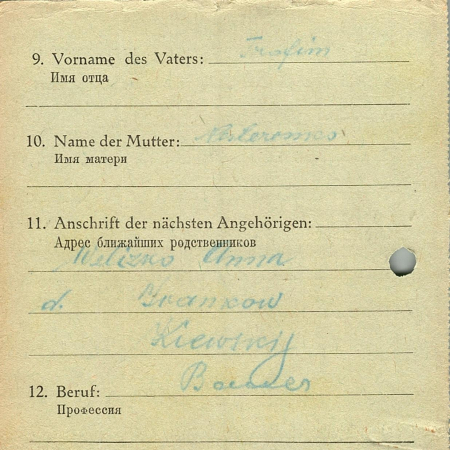 9. Vorname des Vaters: Trofim
Имя отца
10. Name der Mutter: Nesteronko
Имя матери
11. Anschrift der nächsten Angehörigen:
Адрес ближайших родственников
Melizko Anna
d. Ivankow
Kiewsky
12. Beruf: Bauer
Профессия